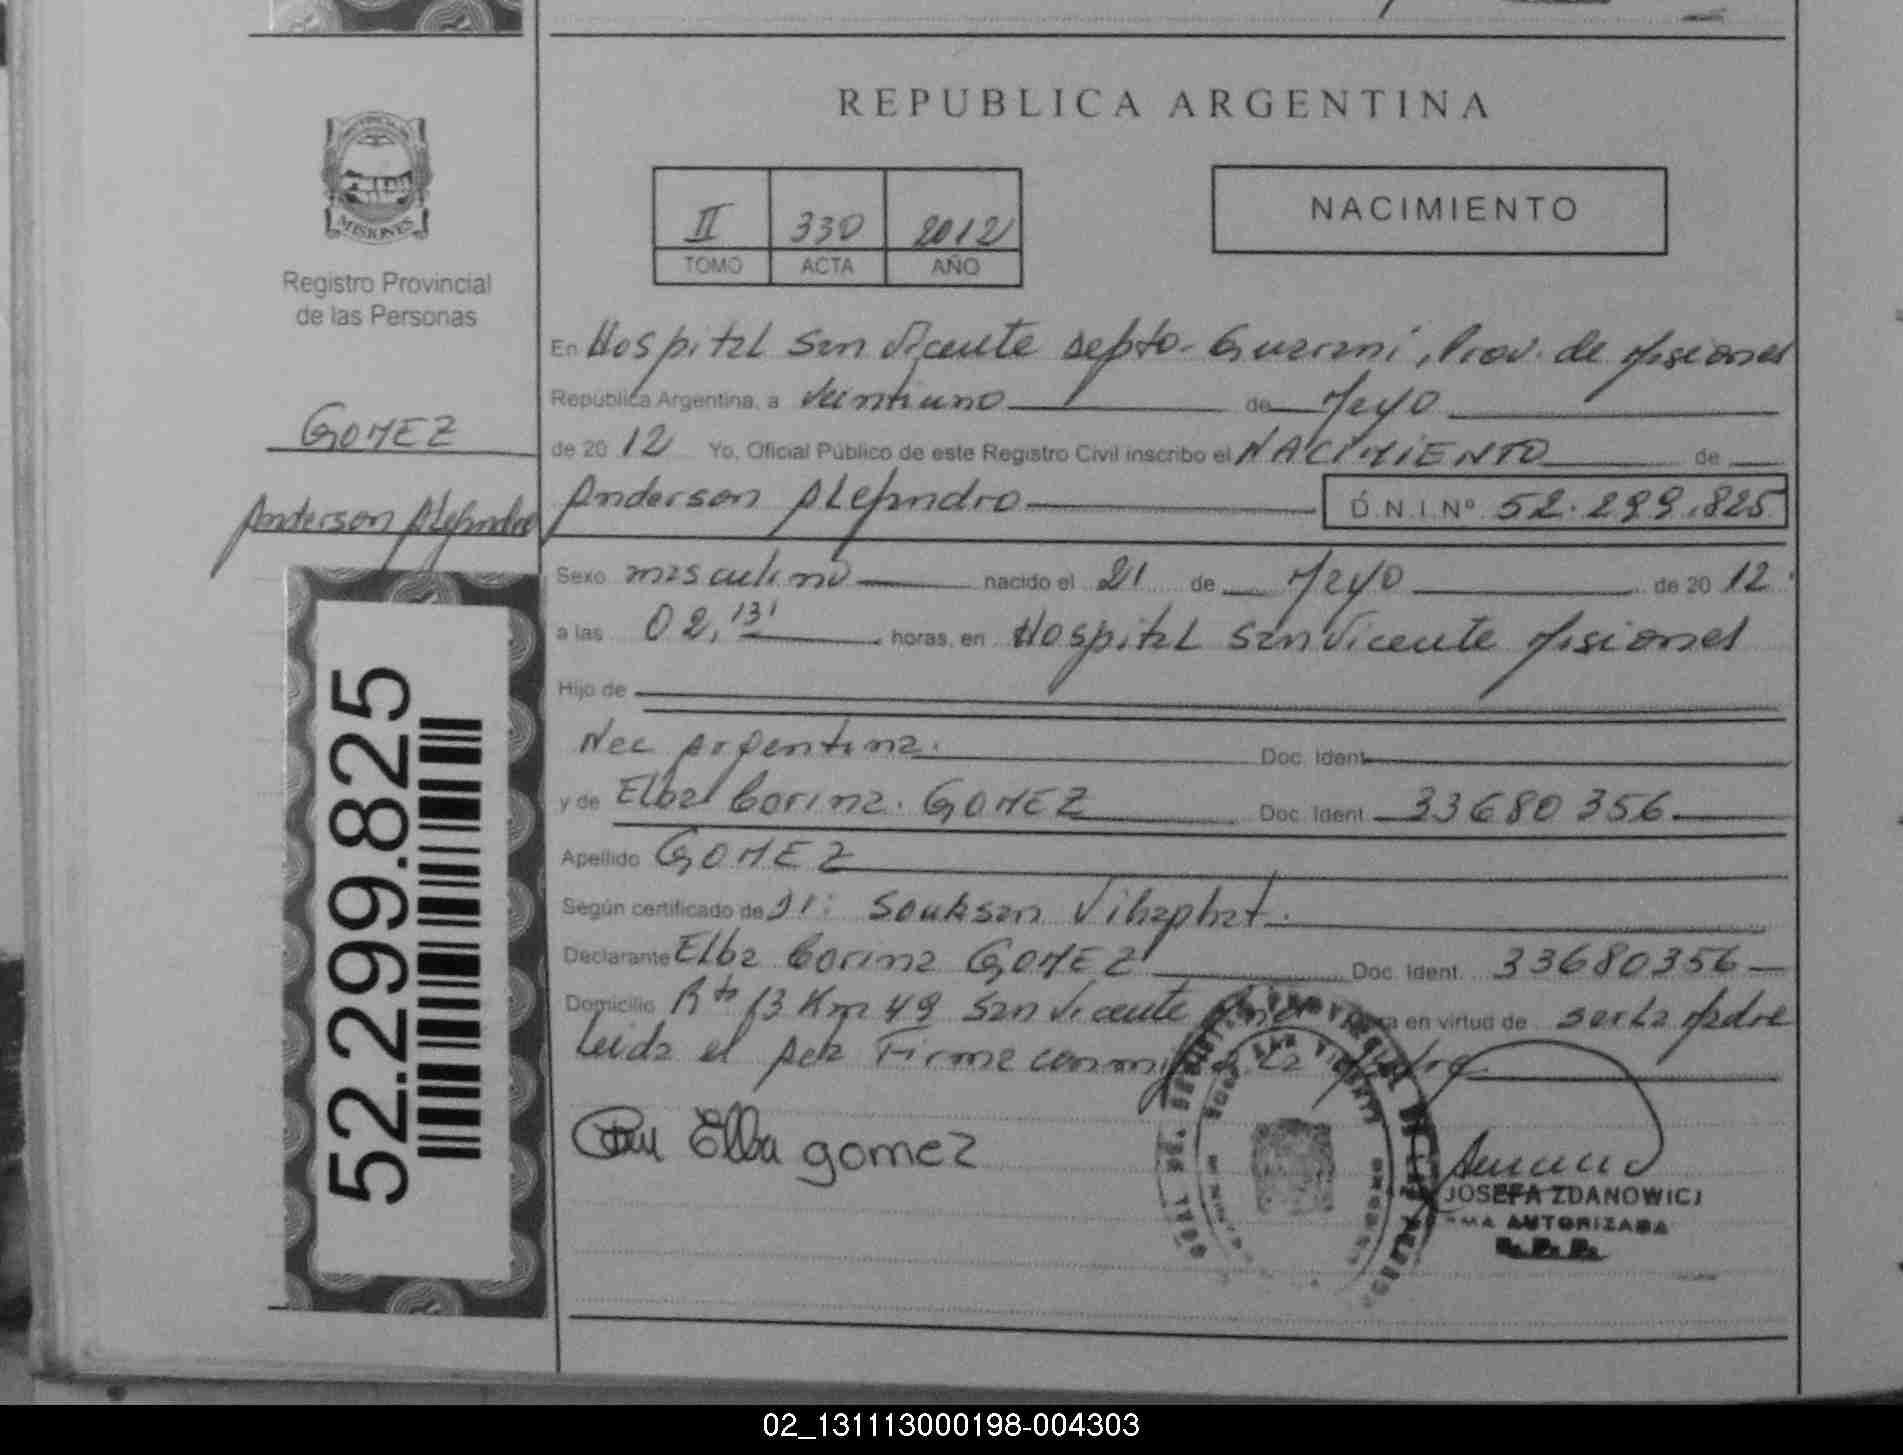 REPUBLICA ARGENTINA
MISIONES
Registro Provincial
de las Personas
II 330 2012
TOMO ACTA AÑO
NACIMIENTO
En Hospital San Vicente Depto. Guarani, Prov. de Misiones
República Argentina, a veintiuno de Mayo
GOMEZ
de 20 12 Yo, Oficial Público de este Registro Civil inscribo el NACIMIENTO de
Anderson Alejandro
Anderson Alejandro D.N.I. Nº 52.299.825
Sexo masculino nacido el 21 de Mayo de 20 12
a las 02,13' horas, en Hospital San Vicente Misiones
Hijo de
Nac Argentina. Doc. Ident.
y de Elba Corina. GOMEZ Doc. Ident. 33680356
Apellido GOMEZ
Según certificado de Dr: Souksan Vihaphat.
Declarante Elba Corina GOMEZ Doc. Ident. 33680356
Domicilio Rta 13 Km 49 San Vicente en virtud de ser la Madre
Leida el Acta Firma conmigo La Madre
52.299.825
Elba gomez
JOSEFA ZDANOWICZ
AUTORIZADA
R.P.P.
02_131113000198-004303